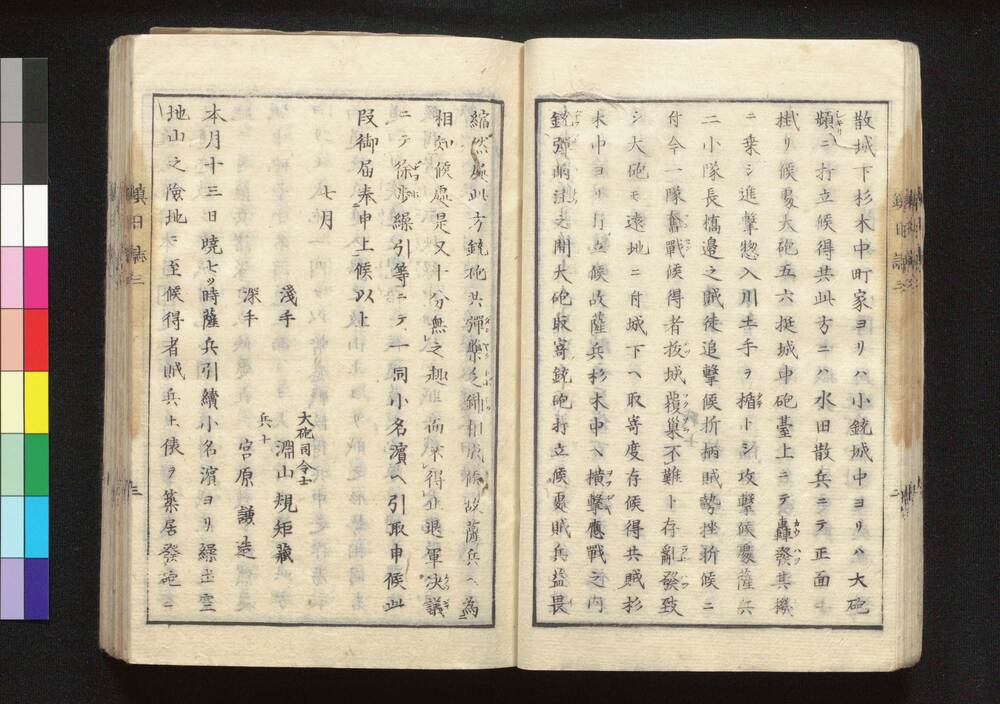 散城下杉木中町家ヨリハ小銃城中ヨリハ大砲
頻ニ打立候得共此方ニハ水田散兵ニテ正面ニ
掛リ候處大砲五六挺城中砲臺上ニテ轟發其機
ニ乗シ進擊惣入川土手ヲ楯トシ攻擊候處薩兵
二小隊長橋邊之賊徒追擊候折柄賊勢挫折候ニ
付今一隊奮戰候得者拔城覆巢不難ト存亂發致
シ大砲モ遠地ニ付城下ヘ取寄度存候得共賊杉
木中ヨリ打立候故薩兵杉木中ヘ橫擊應戰之内
銃彈雨注之間大砲取寄銃砲打立候處賊兵益畏
縮然處此方銃砲共彈藥乏鋪相成候故薩兵ヘ為
相知候處是又十分無之趣 不得止退軍決議
ニテ徐步繰引等ニテ一同小名濱ヘ引取申候此
段御届奉申上候以上
七月
淺手 大砲司令士 淵山規矩藏
深手 兵士 宮原謙造
本月十三日曉七ツ時薩兵引續小名濱ヨリ繰出空
地山之險地ニ至候得者賊兵土俵ヲ築居發砲ニ
鎮日誌二
二
三